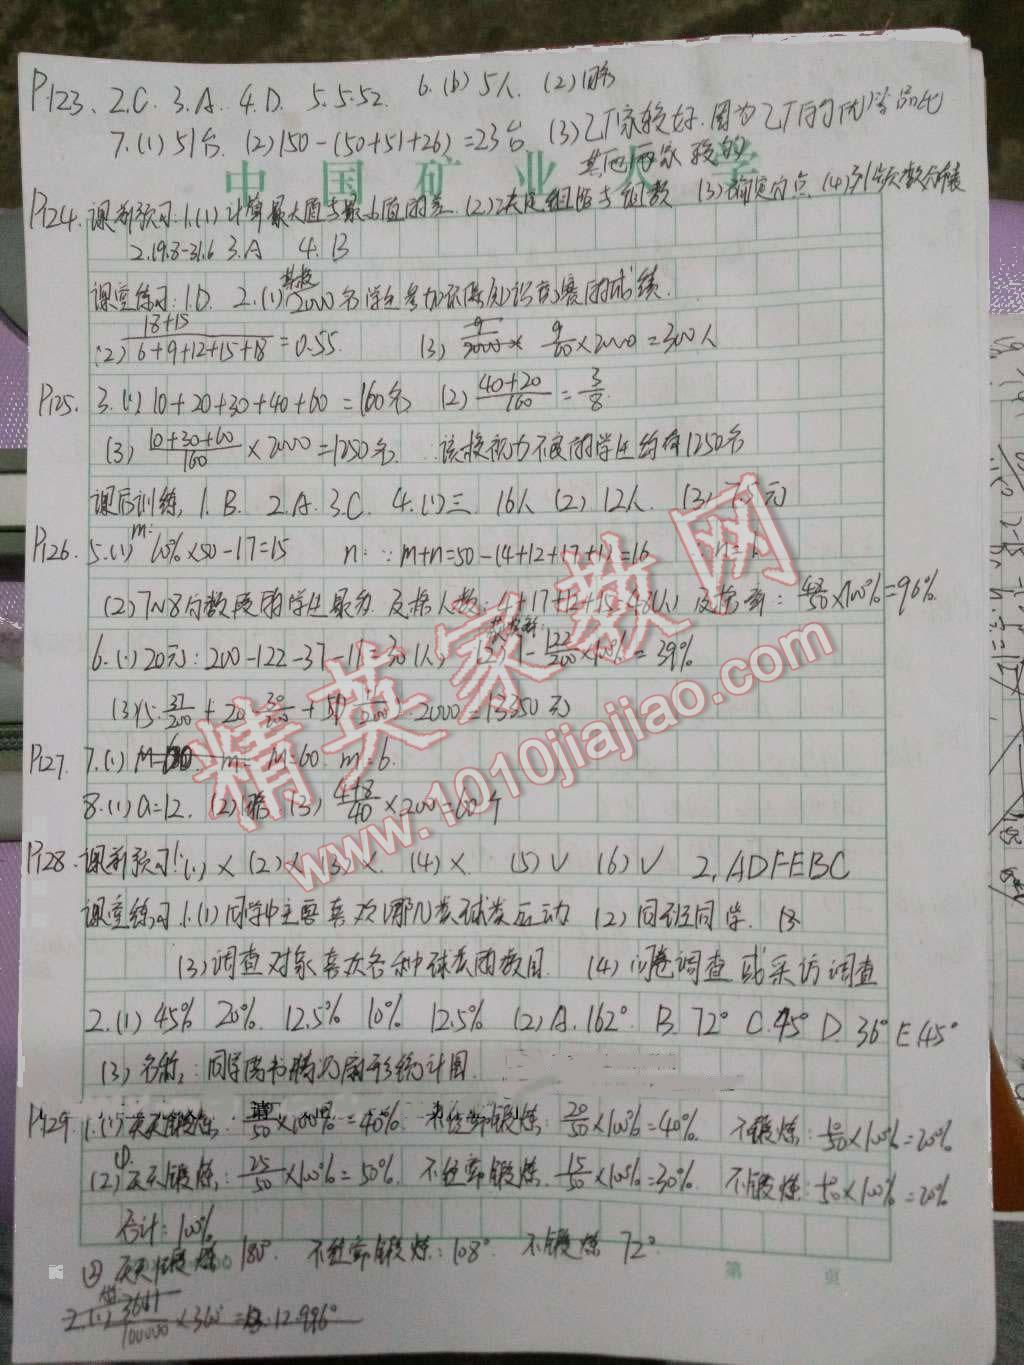 P123. 2.C. 3.A. 4.D. 5. 5.52. 6.(1) 5人. (2)
7.(1) 51台. (2) 150-(50+51+26)=23台 (3) 乙厂家较好. 因为乙厂的
其他两家
中国矿业大学
P124. 课前预习: 1.(1) 计算最大值与最小值的差. (2) 决定组距与组数 (3) 确定分点 (4) 列频数分布表
2. 19.8-31.6 3.A 4.B
课堂练习: 1.D. 2.(1) 某校2000名学生参加 竞赛的成绩.
(2) 18+15/6+9+12+15+18=0.55. (3) 9/60×2000=300人
P125. 3.(1) 10+20+30+40+60=160名 (2) 40+20/160=3/8.
(3) 10+30+60/160×2000=1250名. ∴该校视力不良的学生约有1250名
课后训练, 1.B. 2.A. 3.C. 4.(1) 三 16人 (2) 12人. (3) 元
P126. 5.(1) m: 60%×50-17=15 n: ∵m+n=50-(4+12+17+1)=16
(2) 7~8 分数段的学生最多 及格人数: 4+17+12+15=48(人) 及格率: 48/50×100%=96%.
6.(1) 20元: 200-122-37-11=30(人) 122/200×100%=39%
(3) 15·37/200+20·30/200+50 2000=13350元
P127. 7.(1) M=60 m=6.
8.(1) a=12. (2) 略 (3) 4+8/40×200=60个
P128. 课前预习: 1.(1)× (2)× (3)×. (4)×. (5)√ (6)√ 2. ADFEBC
课堂练习 1.(1) 同学中主要喜欢哪几类球类运动 (2) 同班同学.
(3) 调查对象喜欢各种球类的数目. (4) 问卷调查或采访调查
2.(1) 45% 20%. 12.5% 10% 12.5% (2) A. 162°. B. 72° C. 45° D. 36° E. 45°
(3) 名称: 同学 扇形统计图.
P129. 1.(1) 天天锻炼: /50×100%=40%. 不经常锻炼: 20/50×100%=40%. 不锻炼: 10/50×100%=20%
(2) 天天锻炼: 25/50×100%=50%. 不经常锻炼: 15/50×100%=30%. 不锻炼: ×100%=20%
合计: 100%
② 天天锻炼 180°. 不经常锻炼: 108° 不锻炼 72°.
第 页
2.(1) 3611/100000×360°=12.996°
精英家教网
www.1010jiajiao.com